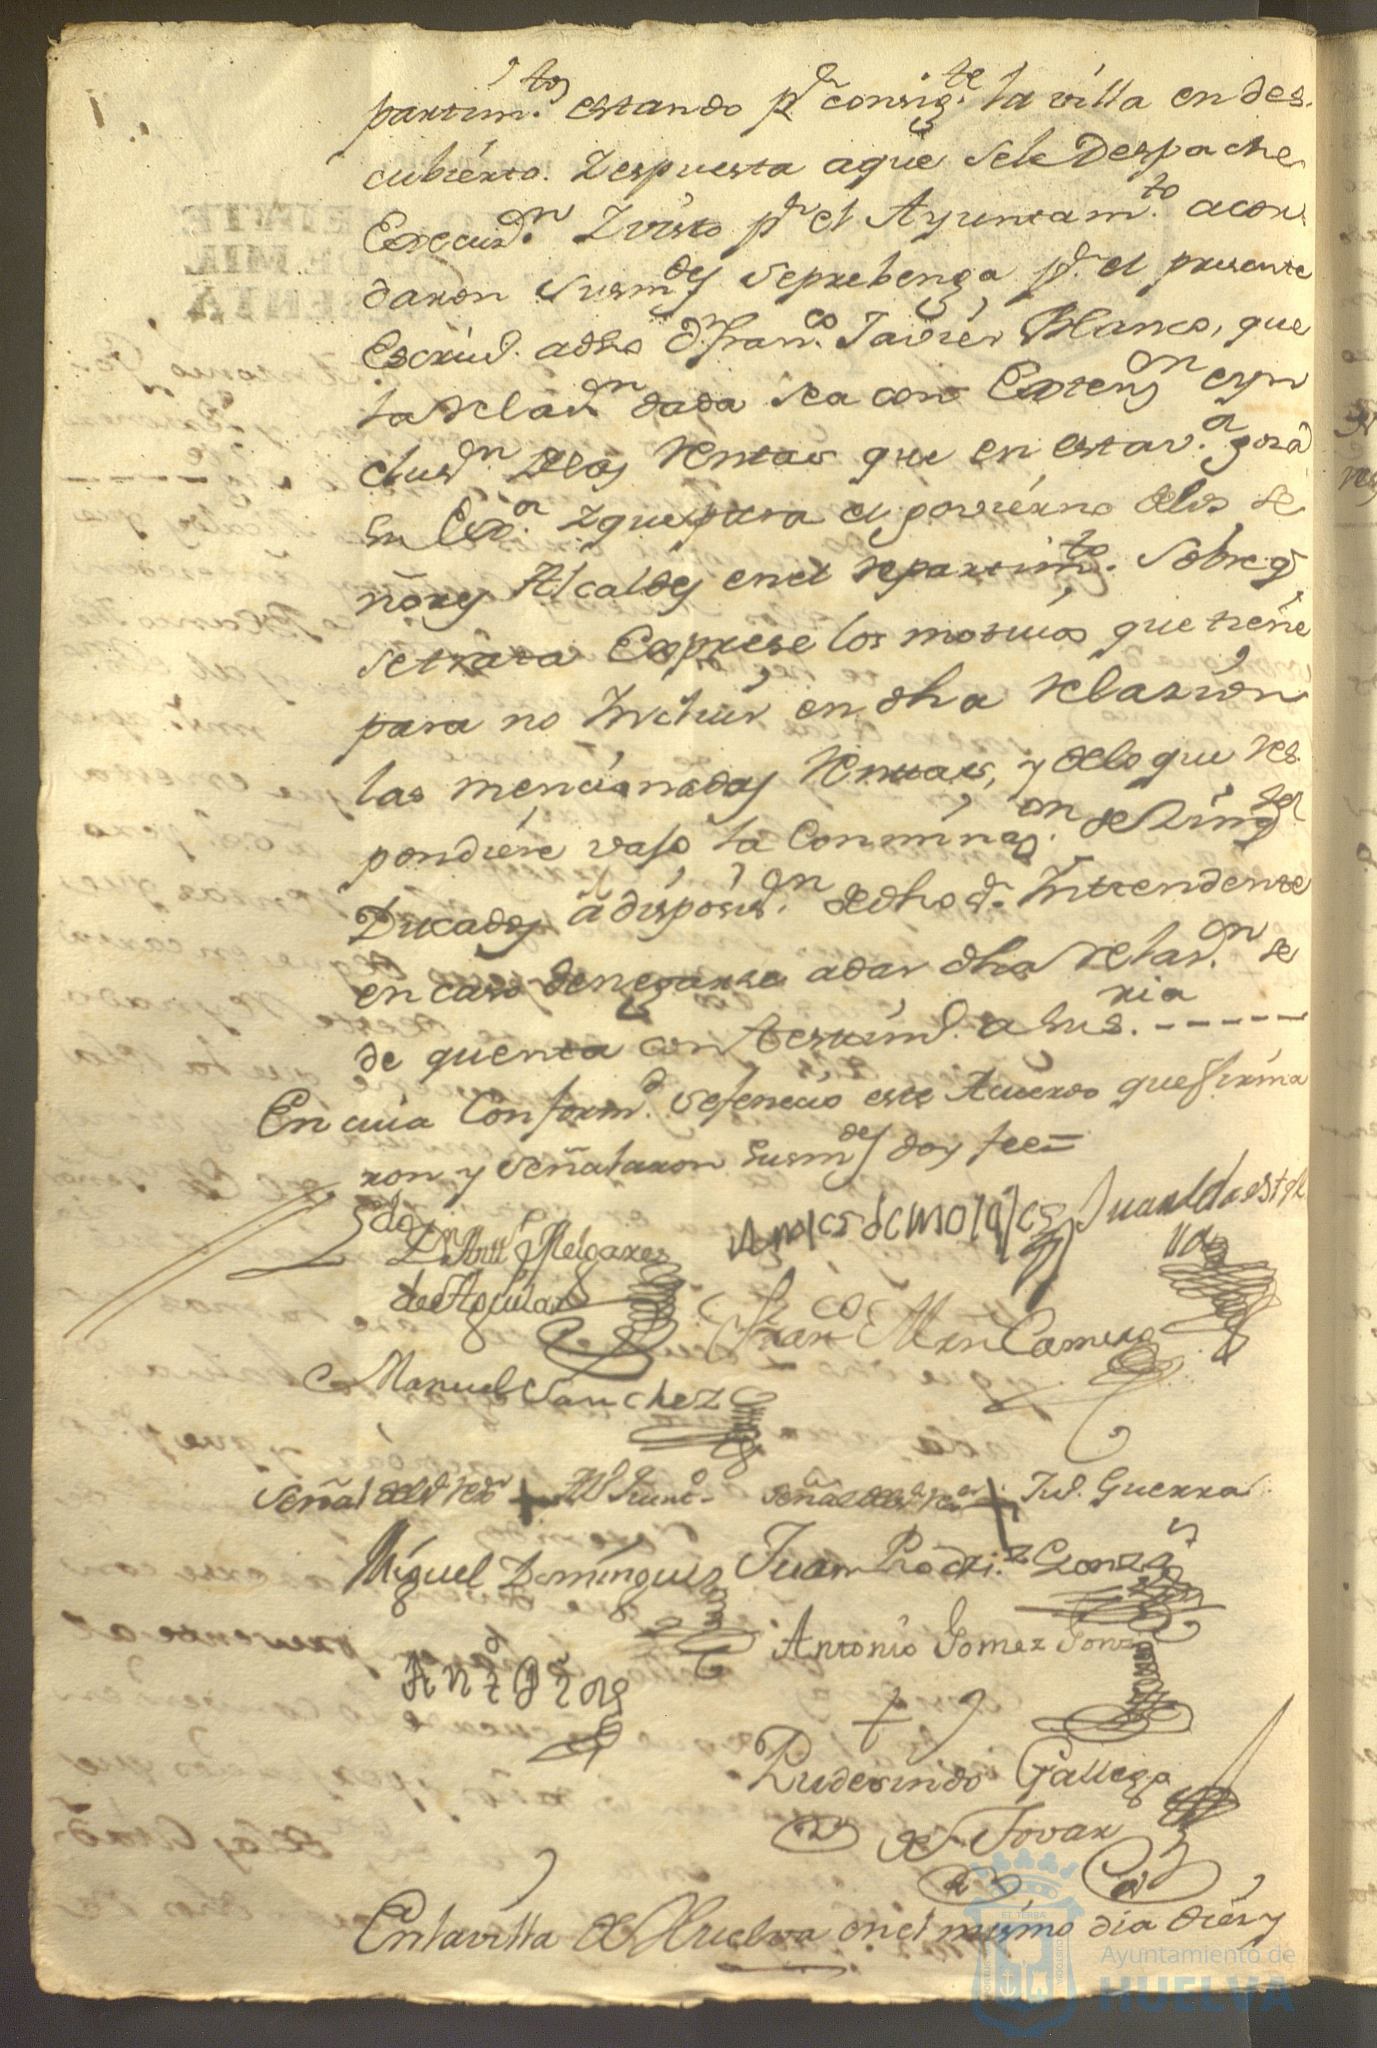 partim.to estando p.r consig.te la villa en des-
cubierto. Zespuesta aque sele Despache
Execuz.on Zvisto p.r el Ayuntam.to acor-
daron Susm.des seprebenga p.r el presente
Escriu.o adho d.n Fran.co Javier Blanco, que
la Relaz.on dada sea con Extens.on eyn
clus.on delas Rentas que en esta v.a goza
su Ex.a Zquepara el govierno delos se
ñores Alcaldes enel repartim.to sobreq.e
setrata Exprese los motiuos que tiene
para no Incluir en dha Relazion
las mencionadas Rentas, y deloque res-
pondiere vajo la Conminaz.on de
Ducados á disposiz.on dedho s.r Intendente
en caso denegarse adar dha Relaz.on se
de quenta con testim.o a Sus.ria - - - - -
En cuia Conform.d sefenecio este Acuerdo quefirma
ron y señalaron Susm.des doy fee=
Ldo D.n Antt.o Melgarejo
de Aguilar
Juan de
Fran.co Mrn Camero
Manuel Sanchez
Señal del s.r Rex.or + señal del s.r Rex.or + Jul. Guerra
Miguel Dominguez Juan Rodri.z Gonza
Antonio Gomez Gonz
Rudesindo Gallego
de Tovar
Enlavilla de Huelva enel mismo dia diez y
Ayuntamiento de
HUELVA